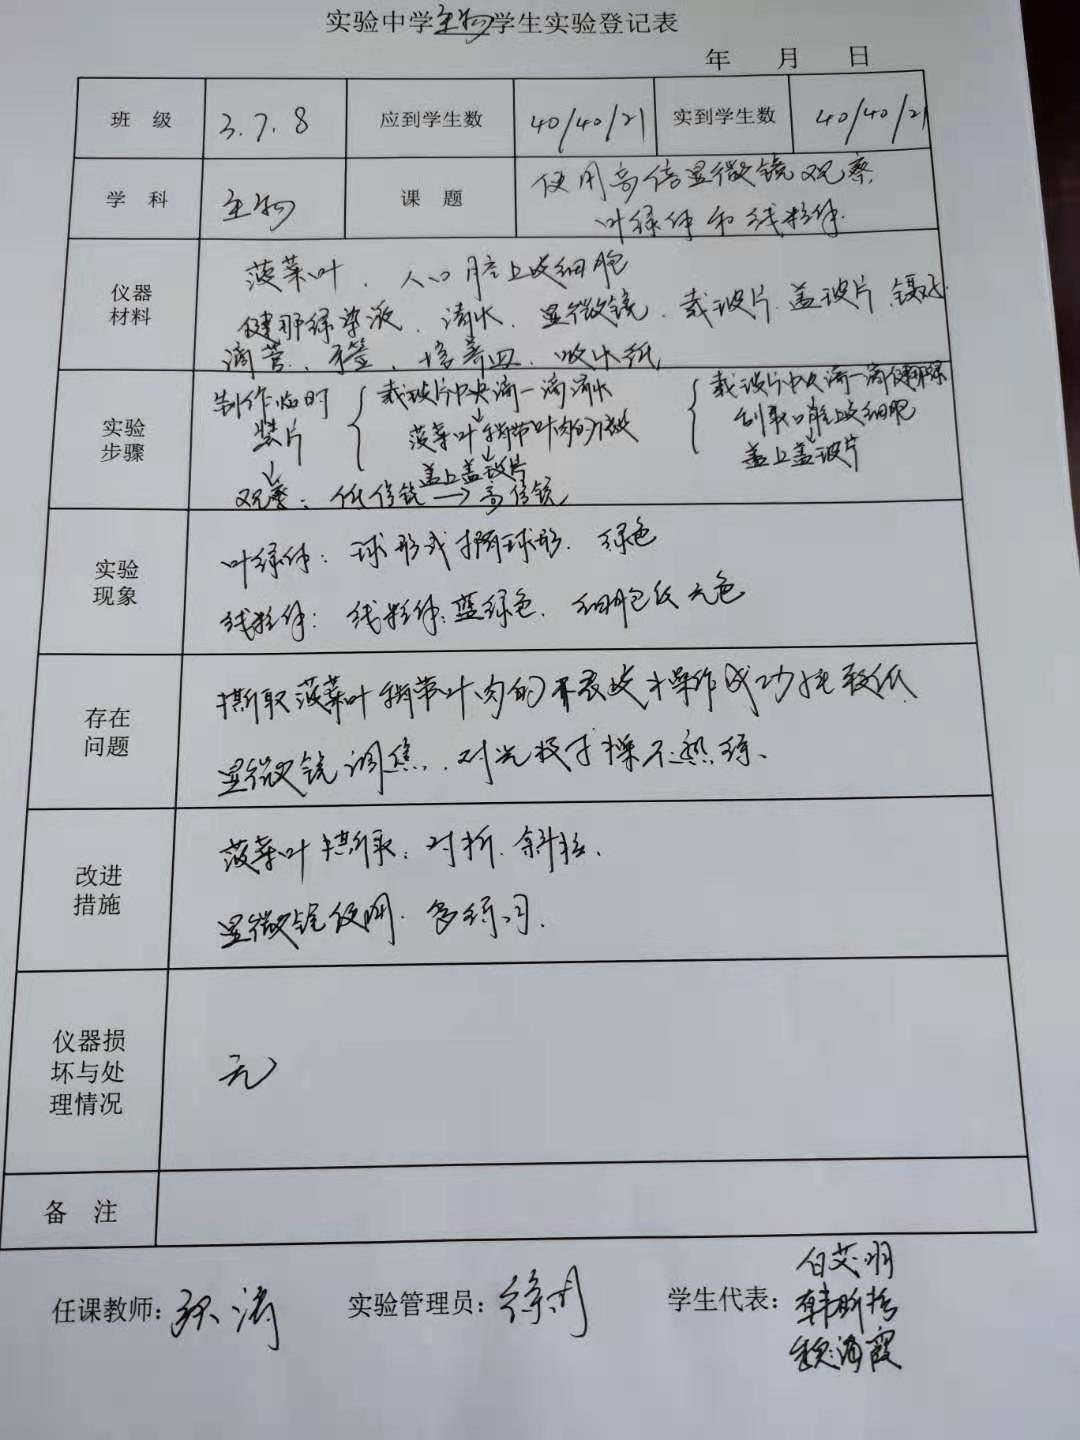 实验中学生物学生实验登记表
年 月 日
班 级 3.7.8 应到学生数 40/40/21 实到学生数 40/40/21
学 科 生物 课 题 使用高倍显微镜观察
叶绿体和线粒体.
仪器
材料
菠菜叶、人口腔上皮细胞
健那绿染液、清水、显微镜、载玻片、盖玻片、镊子
滴管、牙签、培养皿、吸水纸
实验
步骤
制作临时
装片
载玻片中央滴一滴清水
菠菜叶稍带叶肉的下表皮
盖上盖玻片
载玻片中央滴一滴健那绿
刮取口腔上皮细胞
盖上盖玻片
观察: 低倍镜→高倍镜
实验
现象
叶绿体: 球形或椭球形. 绿色
线粒体: 线粒体:蓝绿色. 细胞质无色
存在
问题
撕取菠菜叶稍带叶肉的下表皮 操作成功率较低
显微镜调焦、对光 不熟练、
改进
措施
菠菜叶撕取: 对折、斜拉、
显微镜使用. 多练习.
仪器损
坏与处
理情况
无
备 注
任课教师: 实验管理员: 学生代表: